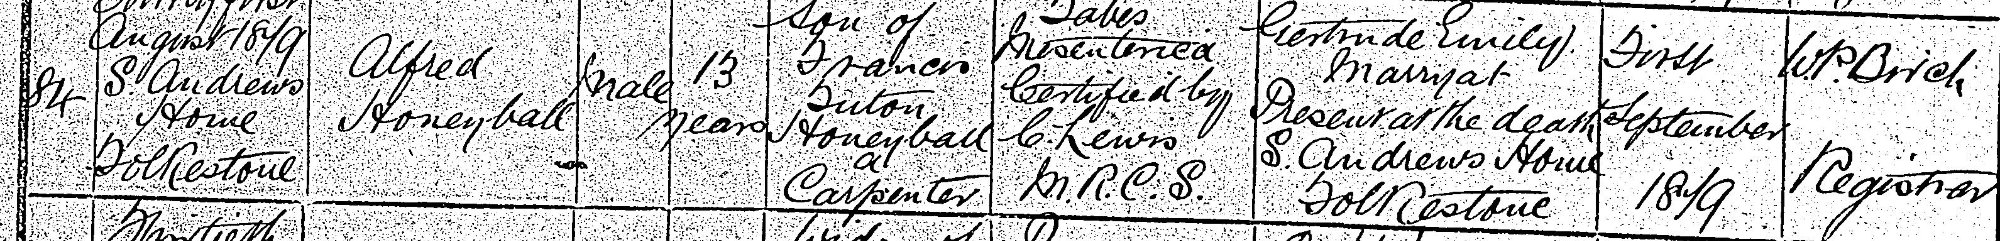 84
August 1879
S. Andrews
Home
Folkestone
Alfred
Honeyball
Male
13
years
Son of
Francis
Futon
Honeyball
a
Carpenter
Tabes
Mesenterica
Certified by
C. Lewis
M.R.C.S.
Gertrude Emily
Marryat
Present at the death
S. Andrews Home
Folkestone
First
September
1879
W.P. Brick
Registrar